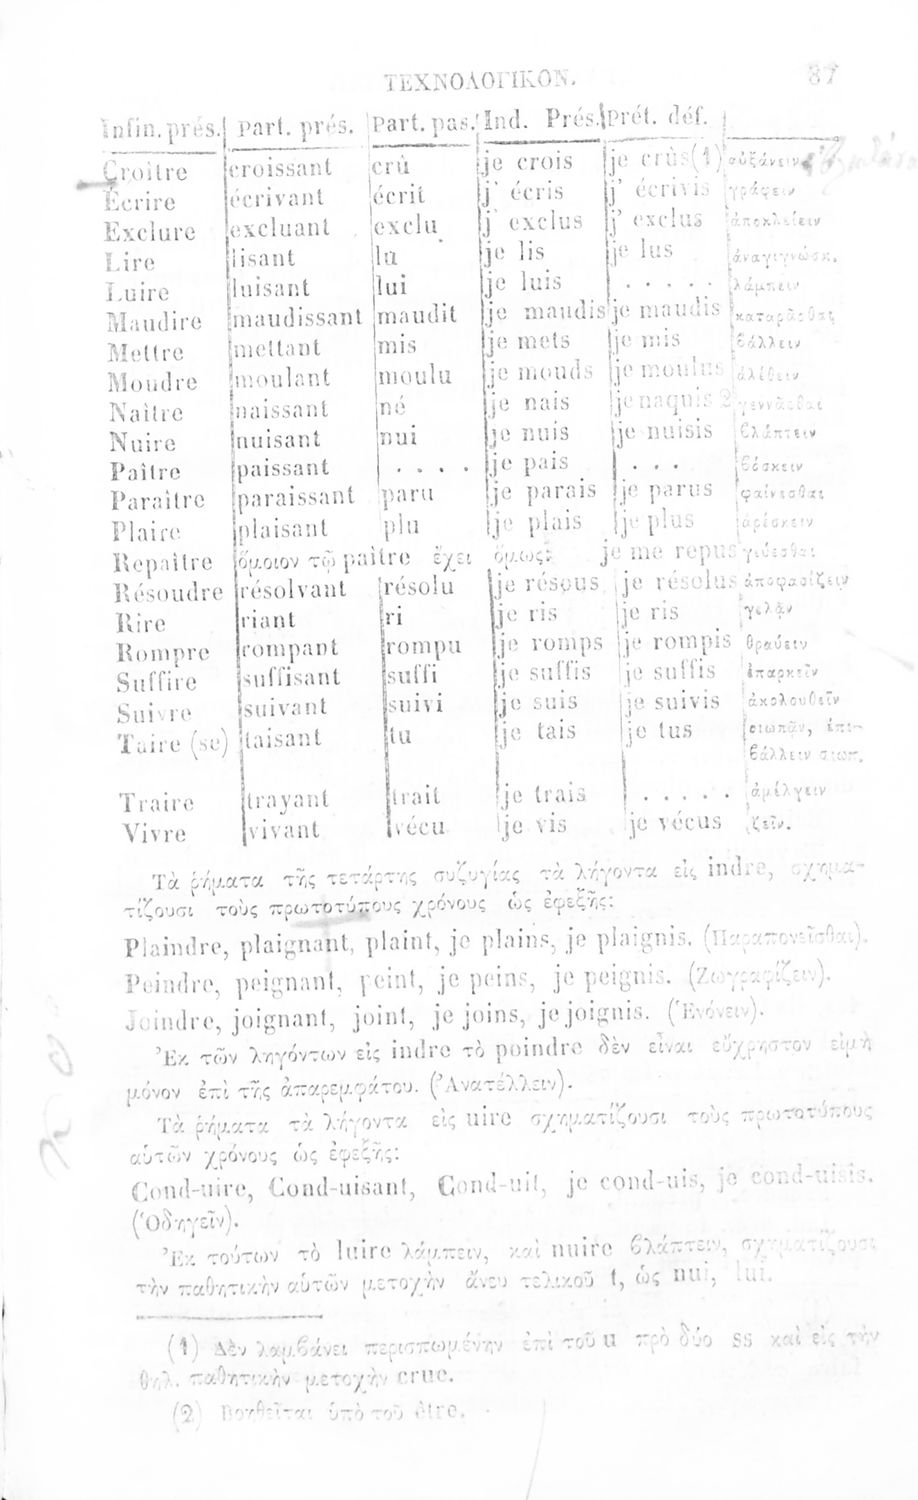 ΤΕΧΝΟΛΟΓΙΚΟΝ. 87
Infin. prés. Part. prés. Part. pas. Ind. Prés. Prét. déf.
Croître croissant crû je crois je crûs(1) αὐξάνειν
Écrire écrivant écrit j' écris j' écrivis γράφειν
Exclure excluant exclu j' exclus j' exclus ἀποκλείειν
Lire lisant lu je lis je lus ἀναγιγνώσκ.
Luire luisant lui je luis . . . . . λάμπειν
Maudire maudissant maudit je maudis je maudis καταρᾶσθαι
Mettre mettant mis je mets je mis βάλλειν
Moudre moulant moulu je mouds je moulus ἀλέθειν
Naître naissant né je nais je naquis 2 γεννᾶσθαι
Nuire nuisant nui je nuis je nuisis βλάπτειν
Paître paissant . . . . je pais . . . βόσκειν
Paraître paraissant paru je parais je parus φαίνεσθαι
Plaire plaisant plu je plais je plus ἀρέσκειν
Repaître ὅμοιον τῷ paître ἔχει ὅμως: je me repus γεύεσθαι
Résoudre résolvant résolu je résous je résolus ἀποφασίζειν
Rire riant ri je ris je ris γελᾷν
Rompre rompant rompu je romps je rompis θραύειν
Suffire suffisant suffi je suffis je suffis ἐπαρκεῖν
Suivre suivant suivi je suis je suivis ἀκολουθεῖν
Taire (se) taisant tu je tais je tus σιωπᾷν, ἐπι-
βάλλειν σιωπ.
Traire trayant trait je trais . . . . . ἀμέλγειν
Vivre vivant vécu je vis je vécus ζεῖν.
Τὰ ῥήματα τῆς τετάρτης συζυγίας τὰ λήγοντα εἰς indre, σχημα-
τίζουσι τοὺς πρωτοτύπους χρόνους ὡς ἐφεξῆς:
Plaindre, plaignant, plaint, je plains, je plaignis. (Παραπονεῖσθαι).
Peindre, peignant, peint, je peins, je peignis. (Ζωγραφίζειν).
Joindre, joignant, joint, je joins, je joignis. (Ἑνόνειν).
Ἐκ τῶν ληγόντων εἰς indre τὸ poindre δὲν εἶναι εὔχρηστον εἰμὴ
μόνον ἐπὶ τῆς ἀπαρεμφάτου. (Ἀνατέλλειν).
Τὰ ῥήματα τὰ λήγοντα εἰς uire σχηματίζουσι τοὺς πρωτοτύπους
αὑτῶν χρόνους ὡς ἐφεξῆς:
Cond-uire, Cond-uisant, Cond-uit, je cond-uis, je cond-uisis.
(Ὁδηγεῖν).
Ἐκ τούτων τὸ luire λάμπειν, καὶ nuire βλάπτειν, σχηματίζουσι
τὴν παθητικὴν αὑτῶν μετοχὴν ἄνευ τελικοῦ t, ὡς nui, lui.
(1) Δὲν λαμβάνει περισπωμένην ἐπὶ τοῦ u πρὸ δύο ss καὶ εἰς τὴν
θηλ. παθητικὴν μετοχὴν crue.
(2) Βοηθεῖται ὑπὸ τοῦ être.